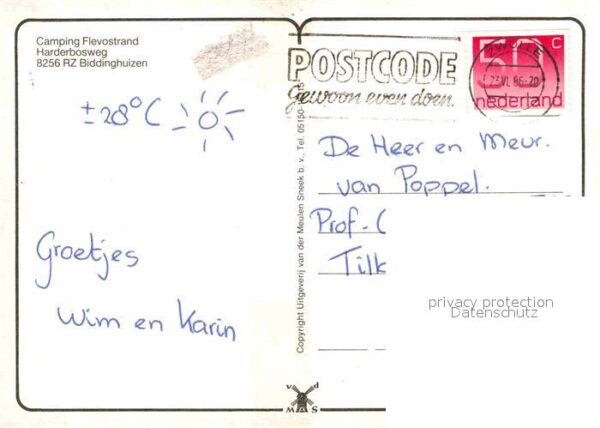 Camping Flevostrand
Harderbosweg
8256 RZ Biddinghuizen
± 28°C
Groetjes
Wim en Karin
POSTCODE
gewoon even doen.
ZWOLLE
23.VI.86-20
50 C
nederland
De Heer en Mevr.
van Poppel.
Prof. C
Tilk
privacy protection
Datenschutz
Copyright Uitgeverij van der Meulen Sneek b.v., Tel. 05150-
v d
MAS